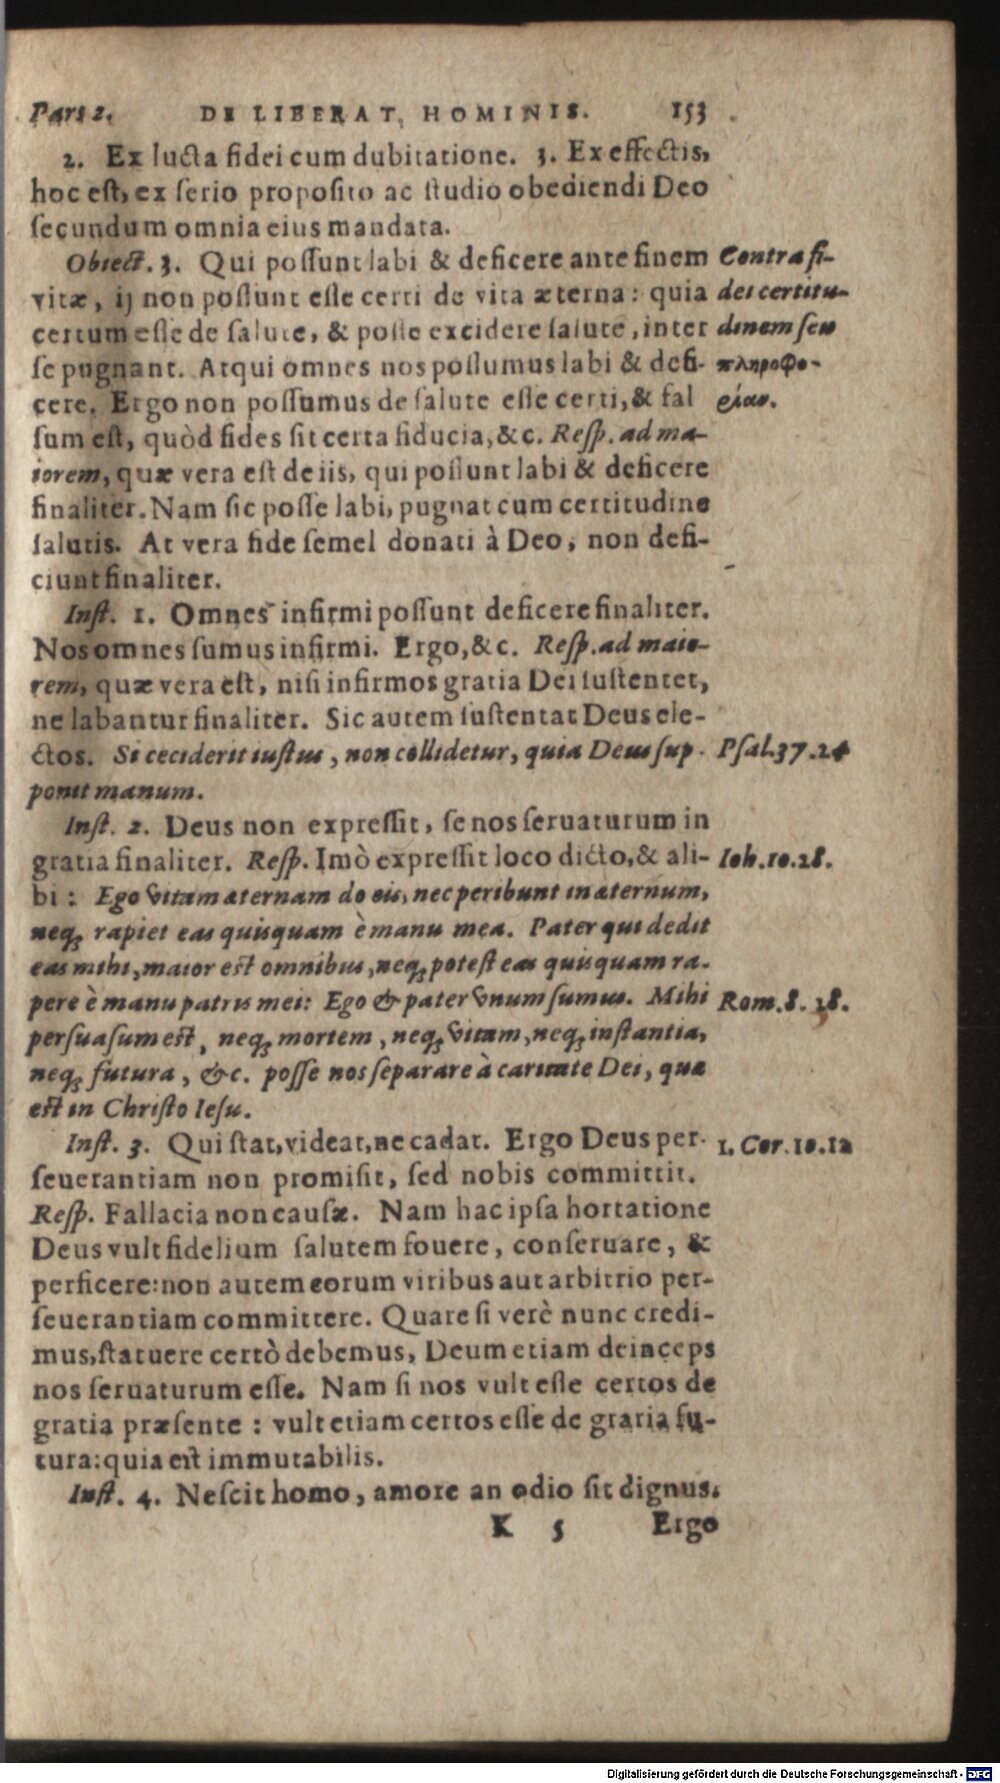 Pars 2. DE LIBERAT. HOMINIS. 153
2. Ex lucta fidei cum dubitatione. 3. Ex effectis,
hoc est, ex serio proposito ac studio obediendi Deo
secundum omnia eius mandata.
Obiect. 3. Qui possunt labi & deficere ante finem
vitæ, ij non possunt esse certi de vita æterna: quia
certum esse de salute, & posse excidere salute, inter
se pugnant. Atqui omnes nos possumus labi & defi-
cere. Ergo non possumus de salute esse certi, & fal
sum est, quòd fides sit certa fiducia, &c. Resp. ad ma-
iorem, quæ vera est de iis, qui possunt labi & deficere
finaliter. Nam sic posse labi, pugnat cum certitudine
salutis. At vera fide semel donati à Deo, non defi-
ciunt finaliter.
Contra fi-
dei certitu-
dinem seu
πληροφο-
ρίαν.
Inst. 1. Omnes infirmi possunt deficere finaliter.
Nos omnes sumus infirmi. Ergo, &c. Resp. ad maio-
rem, quæ vera est, nisi infirmos gratia Dei sustentet,
ne labantur finaliter. Sic autem sustentat Deus ele-
ctos. Si ceciderit iustus, non collidetur, quia Deus sup-
ponit manum.
Psal. 37. 24
Inst. 2. Deus non expressit, se nos seruaturum in
gratia finaliter. Resp. Imò expressit loco dicto, & ali-
bi: Ego vitam æternam do eis, nec peribunt in æternum,
neq; rapiet eas quisquam è manu mea. Pater qui dedit
eas mihi, maior est omnibus, neq; potest eas quisquam ra-
pere è manu patris mei: Ego & pater vnum sumus. Mihi
persuasum est, neq; mortem, neq; vitam, neq; instantia,
neq; futura, &c. posse nos separare à caritate Dei, quæ
est in Christo Iesu.
Ioh. 10. 28.
Rom. 8. 38.
Inst. 3. Qui stat, videat, ne cadat. Ergo Deus per-
seuerantiam non promisit, sed nobis committit.
Resp. Fallacia non causæ. Nam hac ipsa hortatione
Deus vult fidelium salutem fouere, conseruare, &
perficere: non autem eorum viribus aut arbitrio per-
seuerantiam committere. Quare si verè nunc credi-
mus, statuere certò debemus, Deum etiam deinceps
nos seruaturum esse. Nam si nos vult esse certos de
gratia præsente: vult etiam certos esse de gratia fu-
tura: quia est immutabilis.
1. Cor. 10. 12
Inst. 4. Nescit homo, amore an odio sit dignus.
K 5 Ergo
Digitalisierung gefördert durch die Deutsche Forschungsgemeinschaft - DFG